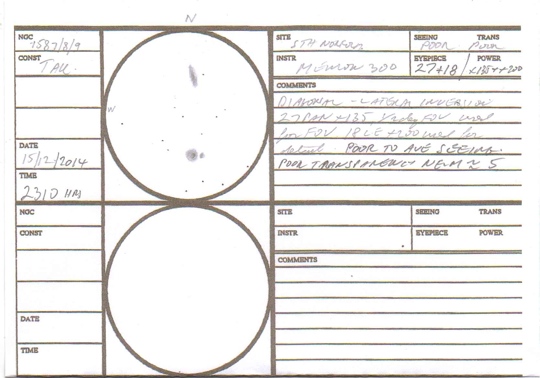 N
NGC
1587/8/9
CONST
TAU.
DATE
15/12/2014
TIME
2310 HRS
W
SITE
STH NORFOLK
SEEING
POOR
TRANS
POOR
INSTR
MEWLON 300
EYEPIECE
27+18
POWER
COMMENTS
DIAGONAL - LATERAL INVERSION
27PAN x135 FOV used
for FOV 18 LE x200 used for
detail. POOR TO AVE SEEING.
POOR TRANSPARENCY NELM ≈ 5
NGC
CONST
DATE
TIME
SITE
SEEING
TRANS
INSTR
EYEPIECE
POWER
COMMENTS